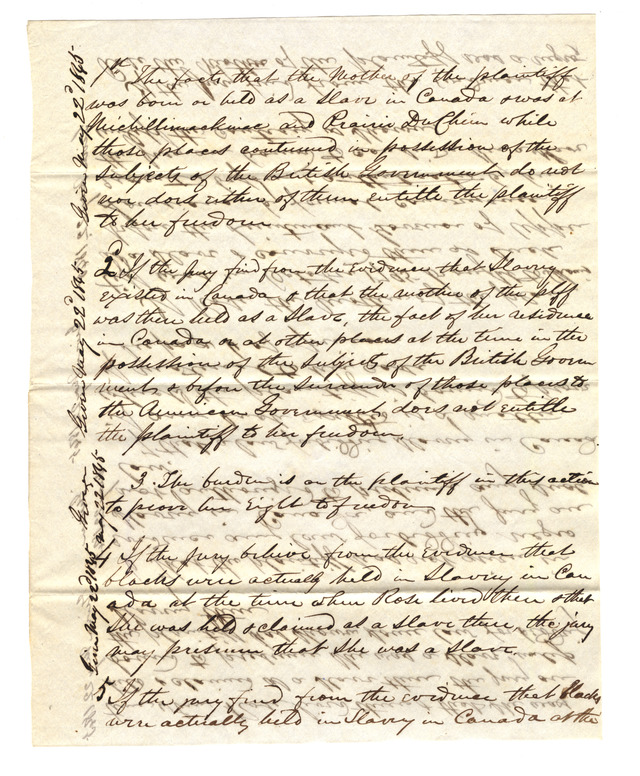 1st The facts that the Mother of the plaintiff
was born or held as a Slave in Canada & was at
Michillimackinac and Prairie DuChien while
those places continued in possession of the
Subjects of the British Government do not
nor does either of them entitle the plaintiff
to her freedom
2d If the jury find from the evidence that Slavery
existed in Canada & that the mother of the plff
was there held as a Slave, the fact of her residence
in Canada or at other places at the time in the
possession of the Subjects of the British Govern
ment, & before the surrender of those places to
the American Government does not entitle
the plaintiff to her freedom.
3. The burden is on the plaintiff in this action
to prove her right to freedom
4 If the jury believe from the evidence that
blacks were actually held in Slavery in Can
ada at the time when Rose lived there & that
she was held & claimed as a Slave there, the jury
may presume that she was a Slave.
5 If the jury find from the evidence that blacks
were actually held in Slavery in Canada at the
Given May 22d 1845
Given May 22d 1845
Given
May 22 1845
Given May 22d 1845